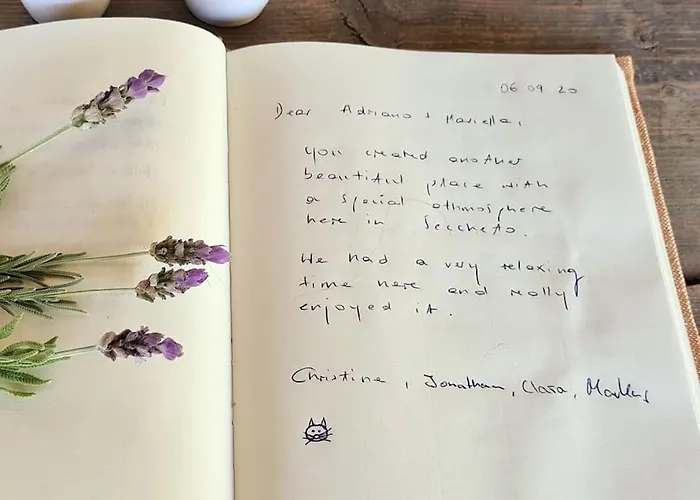 06 09 20
Dear Adriano & Mariella,
you created another
beautiful place with
a special athmosphere
here in Seccheto.
We had a very relaxing
time here and really
enjoyed it.
Christine, Jonathan, Clara, Markus